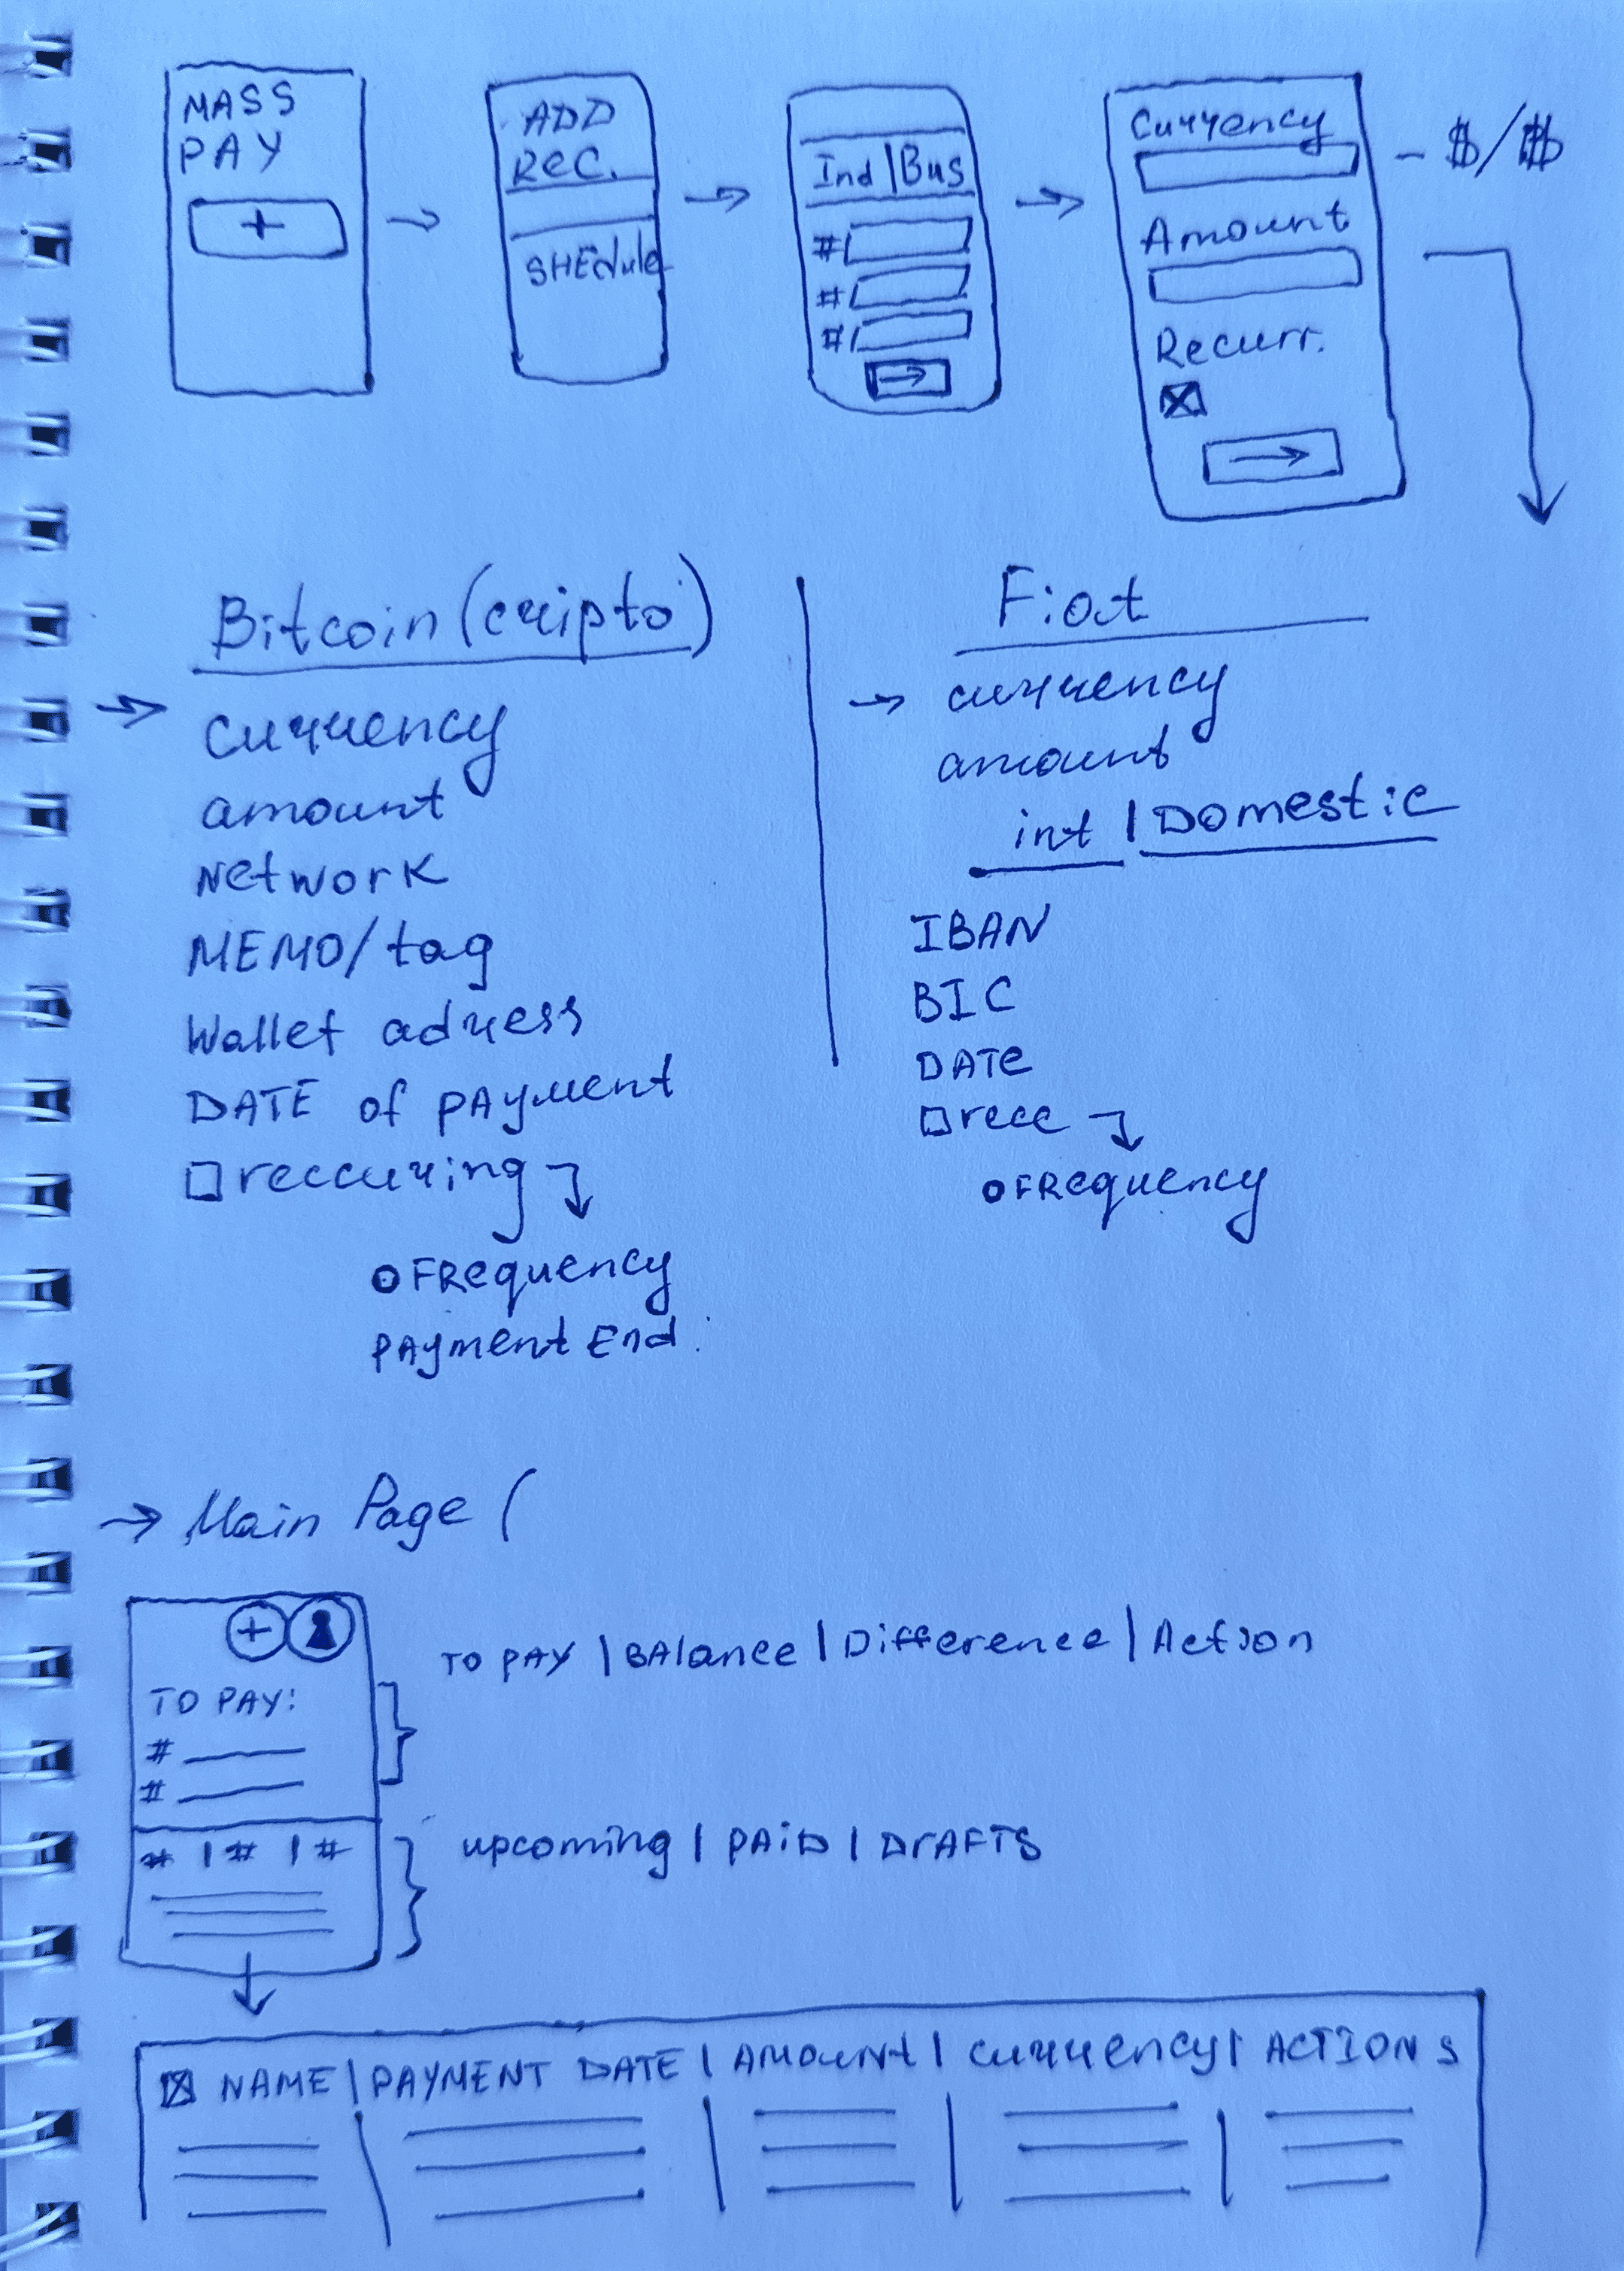 MASS
PAY
+
ADD
REC.
SHEdule
Ind | Bus
#
#
#
Currency
- $/$
Amount
Recurr.
Bitcoin (cripto)
currency
amount
Network
MEMO/tag
Wallet adress
DATE of PAyment
reccuring
Frequency
PAyment End.
Fiat
currency
amount
int | Domestic
IBAN
BIC
DATe
recc
Frequency
Main Page (
+
TO PAY:
#
#
# | # | #
TO PAY | BAlance | Difference | Action
upcoming | PAiD | DrAFTS
NAME | PAYMENT DATE | AMOUNT | currency | ACTIONS